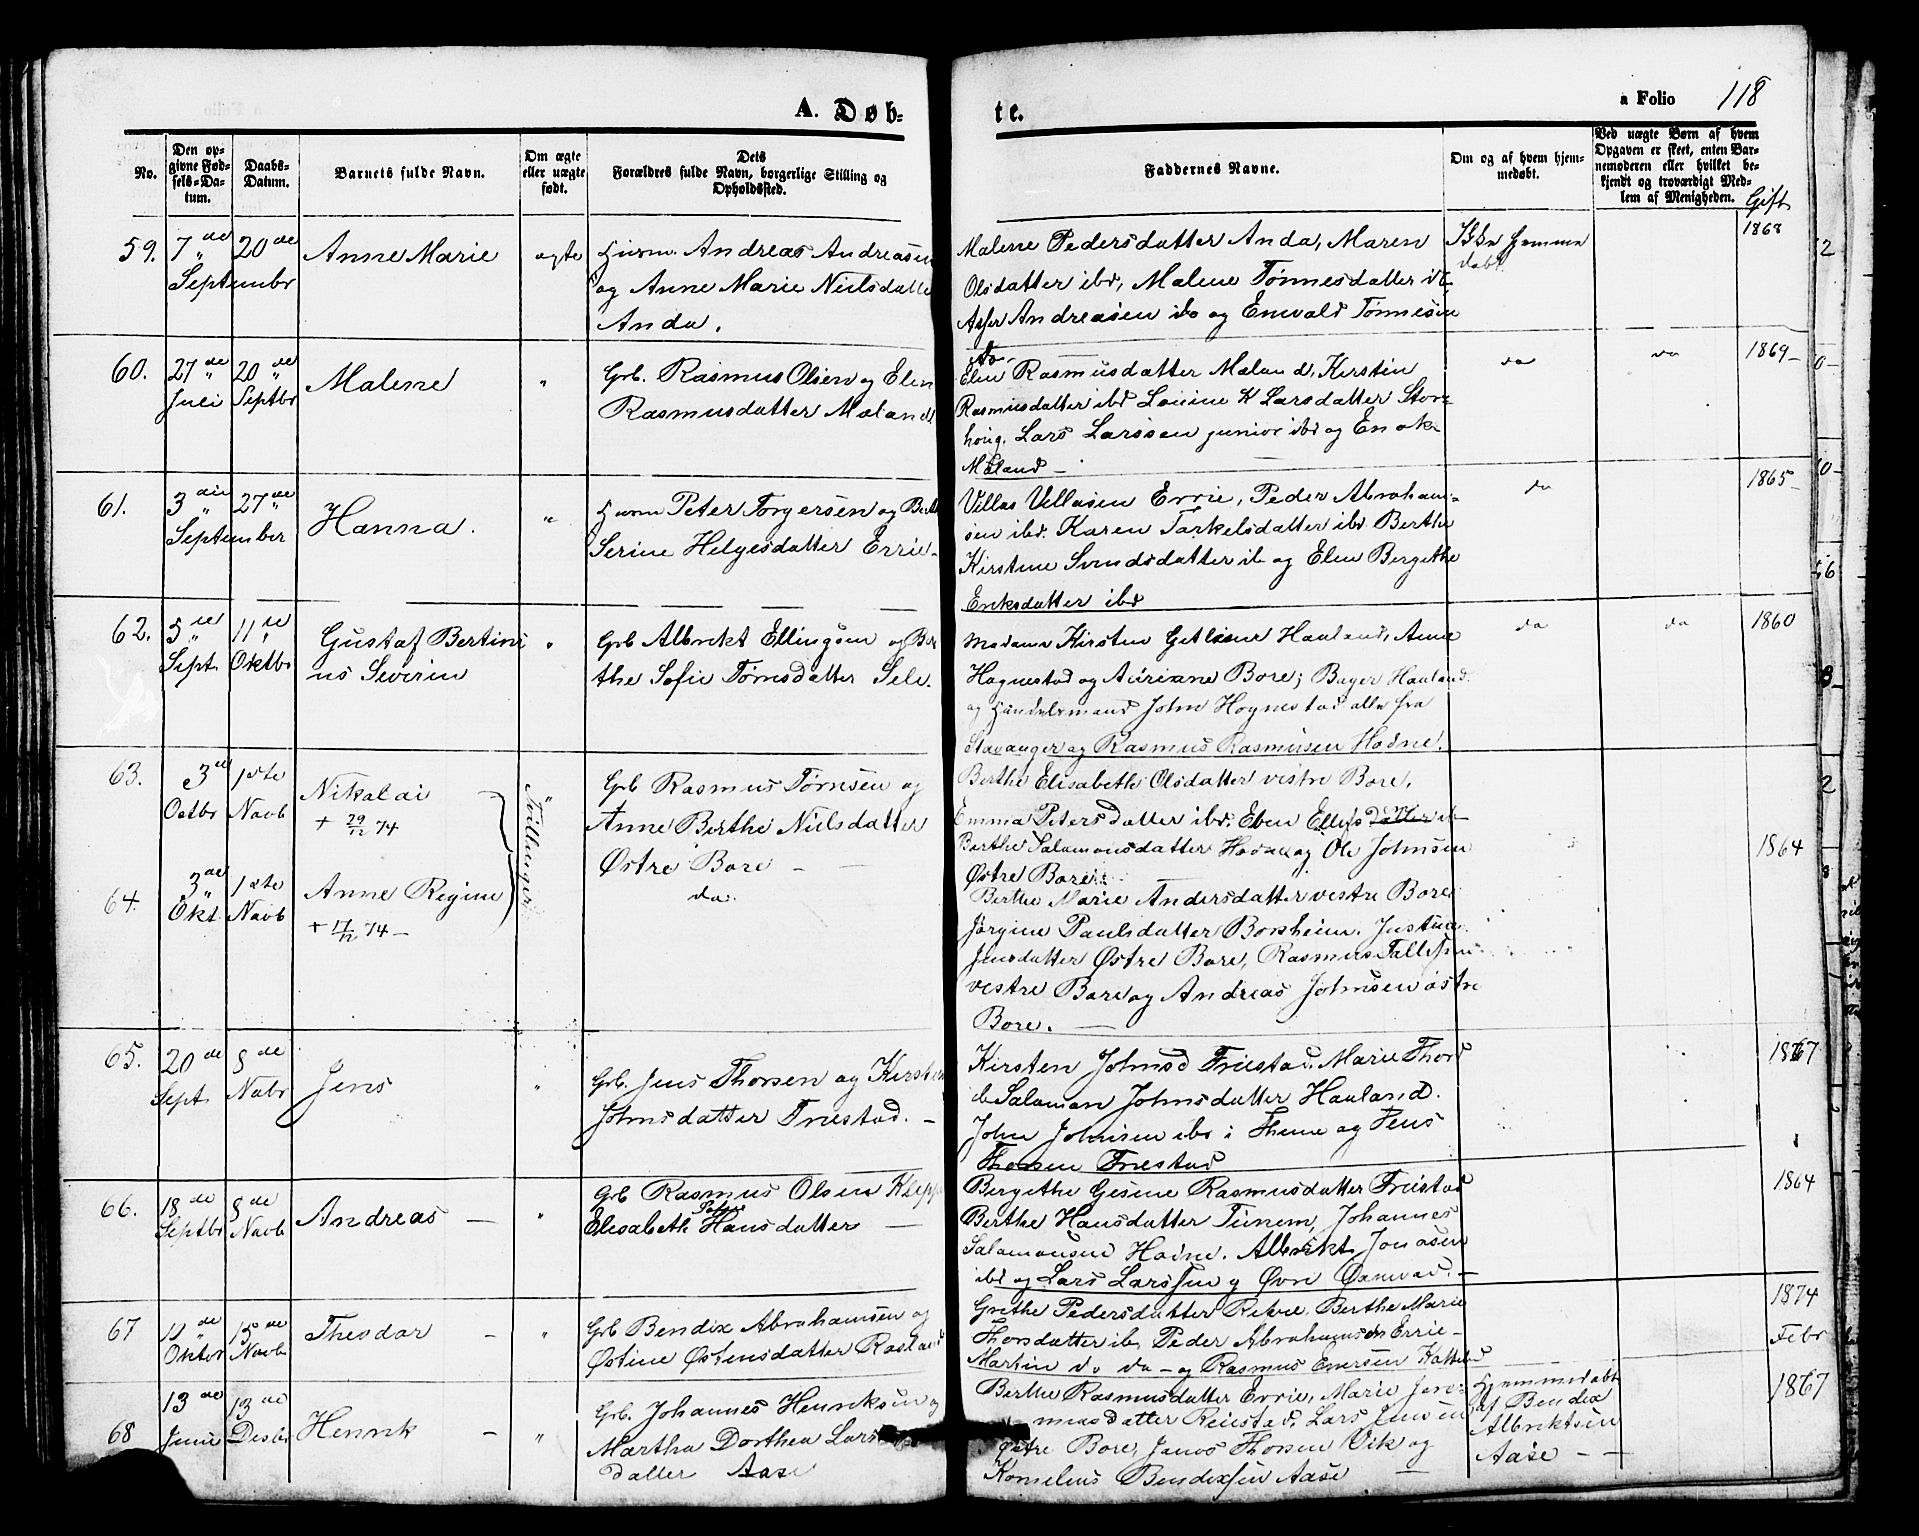 A. Døb=
te.
a Folio 118
No.
Den op-
givne Fød-
sels-Da-
tum.
Daabs-
Datum.
Barnets fulde Navn.
Om ægte
eller uægte
født.
Dets
Forældres fulde Navn, borgerlige Stilling og
Opholdssted.
Faddernes Navne.
Om og af hvem hjem-
medøbt.
Ved uægte Børn af hvem
Opgaven er skeet, enten Bar-
nemoderen eller hvilket be-
kjendt og troværdigt Med-
lem af Menigheden.
Gift
59. 7de September
20de
Anne Marie
ægte
Andreas Andreasen
og Anne Marie Nielsdatter
Anda.
Malene Pedersdatter Anda, Maren
Olsdatter ibd, Malene Tønnesdatter ib
Asser Andreasen ibd og Enevald Tønnesen
ibd.
Ikke hjemme
døbt
1868
60. 27de Juli
20de Septbr
Malene
"
Grb. Rasmus Olsen og Elen
Rasmusdatter Mæland.
Elen Rasmusdatter Mæland, Kirstin
Rasmusdatter ibd Lovine K Larsdatter Stor-
houg. Lars Larssen junior ibd og Enok
Mæland -
do
do
1869-
61. 3die September
27de
Hanna.
"
Peter Torgersen og
Serine Helgesdatter Errie-
Villas Villasen Errie, Peder Abraham-
sen ibd. Karen Tarkelsdatter ibd Berthe
Kirstine Svendsdatter ib og Elen Bergithe
Eriksdatter ibd
do
1865-
62. 5te Sept.
11te Oktbr
Gustaf Bertini
us Severin
"
Grb Albrekt Ellingsen og Ber
the Sofie Tørnsdatter Sele.
Madame Kirsten Haaland, Anna
Hognestad og Adriane Bore; Bager Haaland
og Handelsmand John Hognestad alle fra
Stavanger og Rasmus Rasmusen Hodne.
do
do
1860
63. 3de Octbr
1ste Novb
Nikolai
+ 29/12 74
" Tvillinger
Grb Rasmus Tørnsen og
Anne Berthe Nielsdatter
Østre Bore -
Berthe Elisabeth Olsdatter vestre Bore.
Emma Petersdatter ibd. Eben ib
Berthe Salamonsdatter Hodne og Ole Johnsen
Østre Bore.
1864
64. 3de Okt.
1ste Novb
Anne Regine
+ 17/12 74 -
do.
Berthe Marie Andersdatter vestre Bore
Jørgine Paulsdatter Borsheim. Justine
Jensdatter Østre Bore, Rasmus
vestre Bore og Andreas Johnsen østre
Bore. -
65. 20de Sept.
8de Novbr
Jens
"
Grb. Jens Thorsen og Kirsten
Johnsdatter Friestad. -
Kirsten Johnsd Friestad. Marie Thord
ib Salamon Johnsdatter Haaland.
John Johnsen ibd i Thime og Jens
Thorsen Friestad
1867
66. 18de Septbr
8de Novb
Andreas -
"
Grb Rasmus Olsen Klepp
Elisabeth Hansdatter -
Bergithe Gesine Rasmusdatter Friestad
Berthe Hansdatter Tunem, Johannes
Salamonsen Hodne. Albrikt Jonasen
ibd og Lars Larssen Øvre Øxnevad. -
1864
67 11de Oktbr
15de Novb
Theodor -
"
Grb Bendix Abrahamsen og
Østine Østensdatter
Grethe Pedersdatter Reve, Berthe Marie
Thorsdatter ib, Peder Abrahamsen Errie-
Martin do do - og Rasmus Enersen
1874
Febr
68 13de Juni
13de Desbr
Henrik -
"
Grb. Johannes Henriksen og
Martha Dorthea Lars
datter Aase
Berthe Rasmusdatter Errie, Marie Jere-
miasdatter Reiestad, Lars Jensen
østre Bore, Jonas Thorsen Vik og
Kornelius Bendixsen Aase -
Hjemmedøbt
af Bendix
Albriktsen
Aase - -
1867